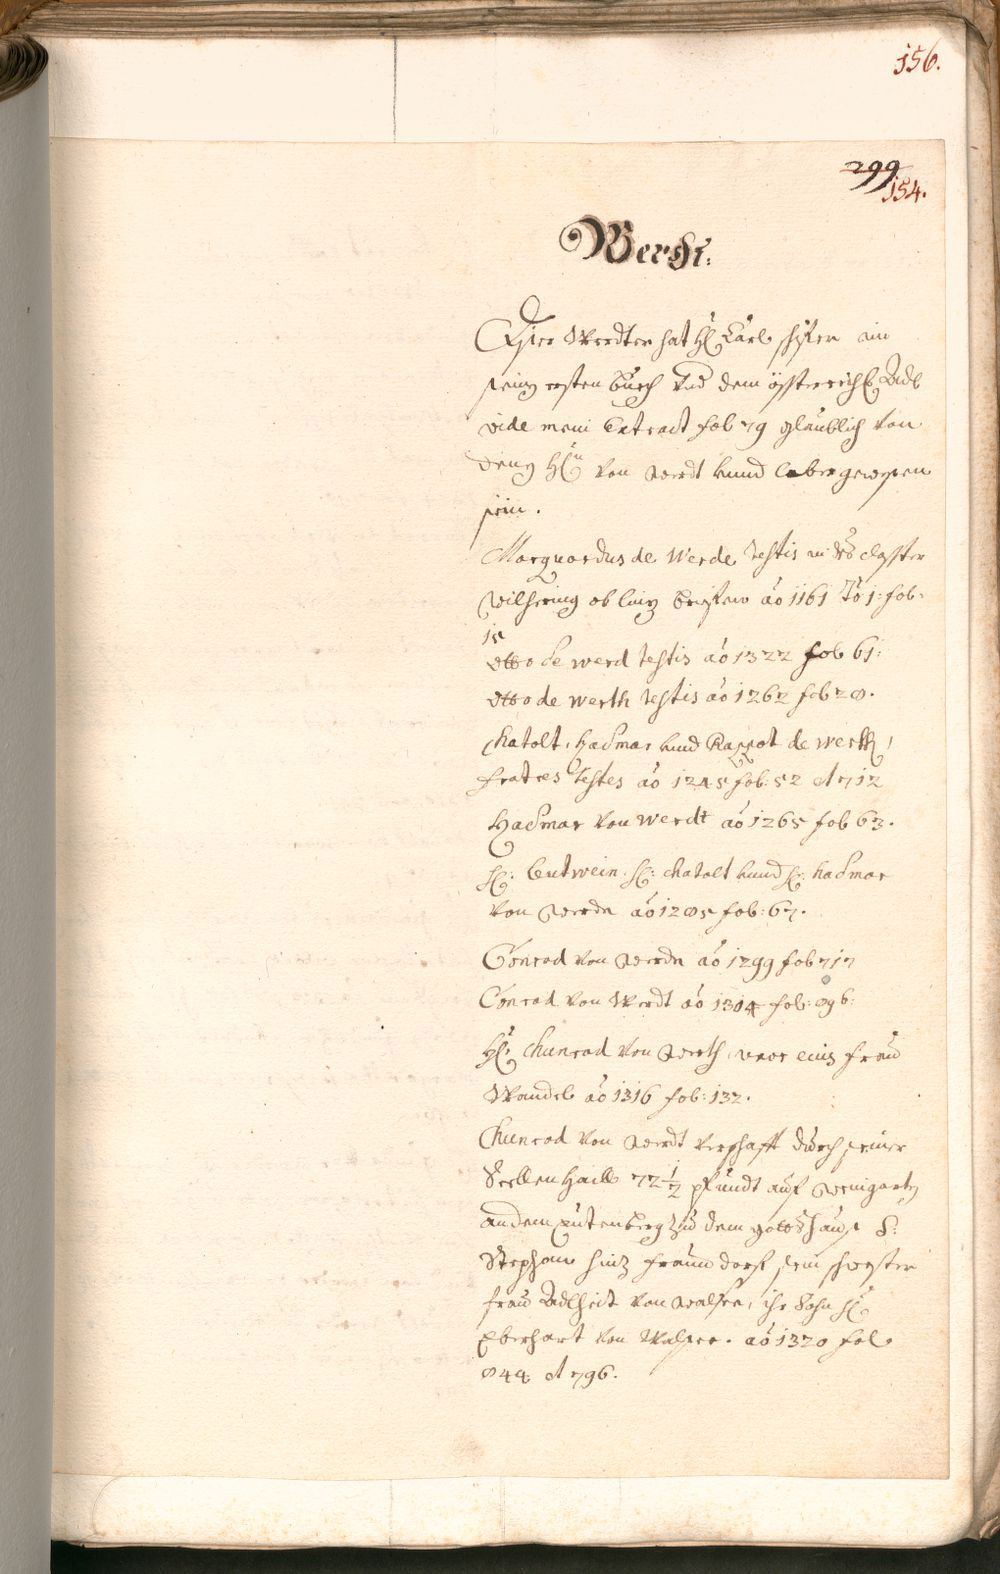 156.
299
154.
Werdt:
Dier Werdter hat H: Carl ain
seinz ersten buech dem össterreich: Adl
vide meni Extract fol 79 glaublich von
H:n von Werdt unnd gewesen
sein.
Marquardus de Werde testis in closter
Wilhering ob linz ao 1161 To 1: fol:
15
Otto de werd testis ao 1322 fol 61:
Otto de werth testis ao 1262 fol 28.
Chatolt, Hadmar unnd Rappot de werth,
fratres testes ao 1245 fol: 52 et 712
Hadmar von werdt ao 1265 fol 63.
H: leutwein. H: chatolt unnd H: hadmar
von Werde ao 1285 fol: 67.
Conrad von Werde ao 1299 fol 717
Conrad von Werdt ao 1304 fol: 896:
H: Chunrad von Werth, uxor eius frau
Wandl ao 1316 fol: 132.
Chunrad von Werdt verschafft durch seiner
Seellen Haill 72 1/2 pfundt auf weingarten
an dem zu dem gottshaus S:
Stephan hinz sein schwester
frau Adlheidt von Walsee, ihr Sohn H:
Eberhart von Walsee. ao 1320 fol
844 et 796.